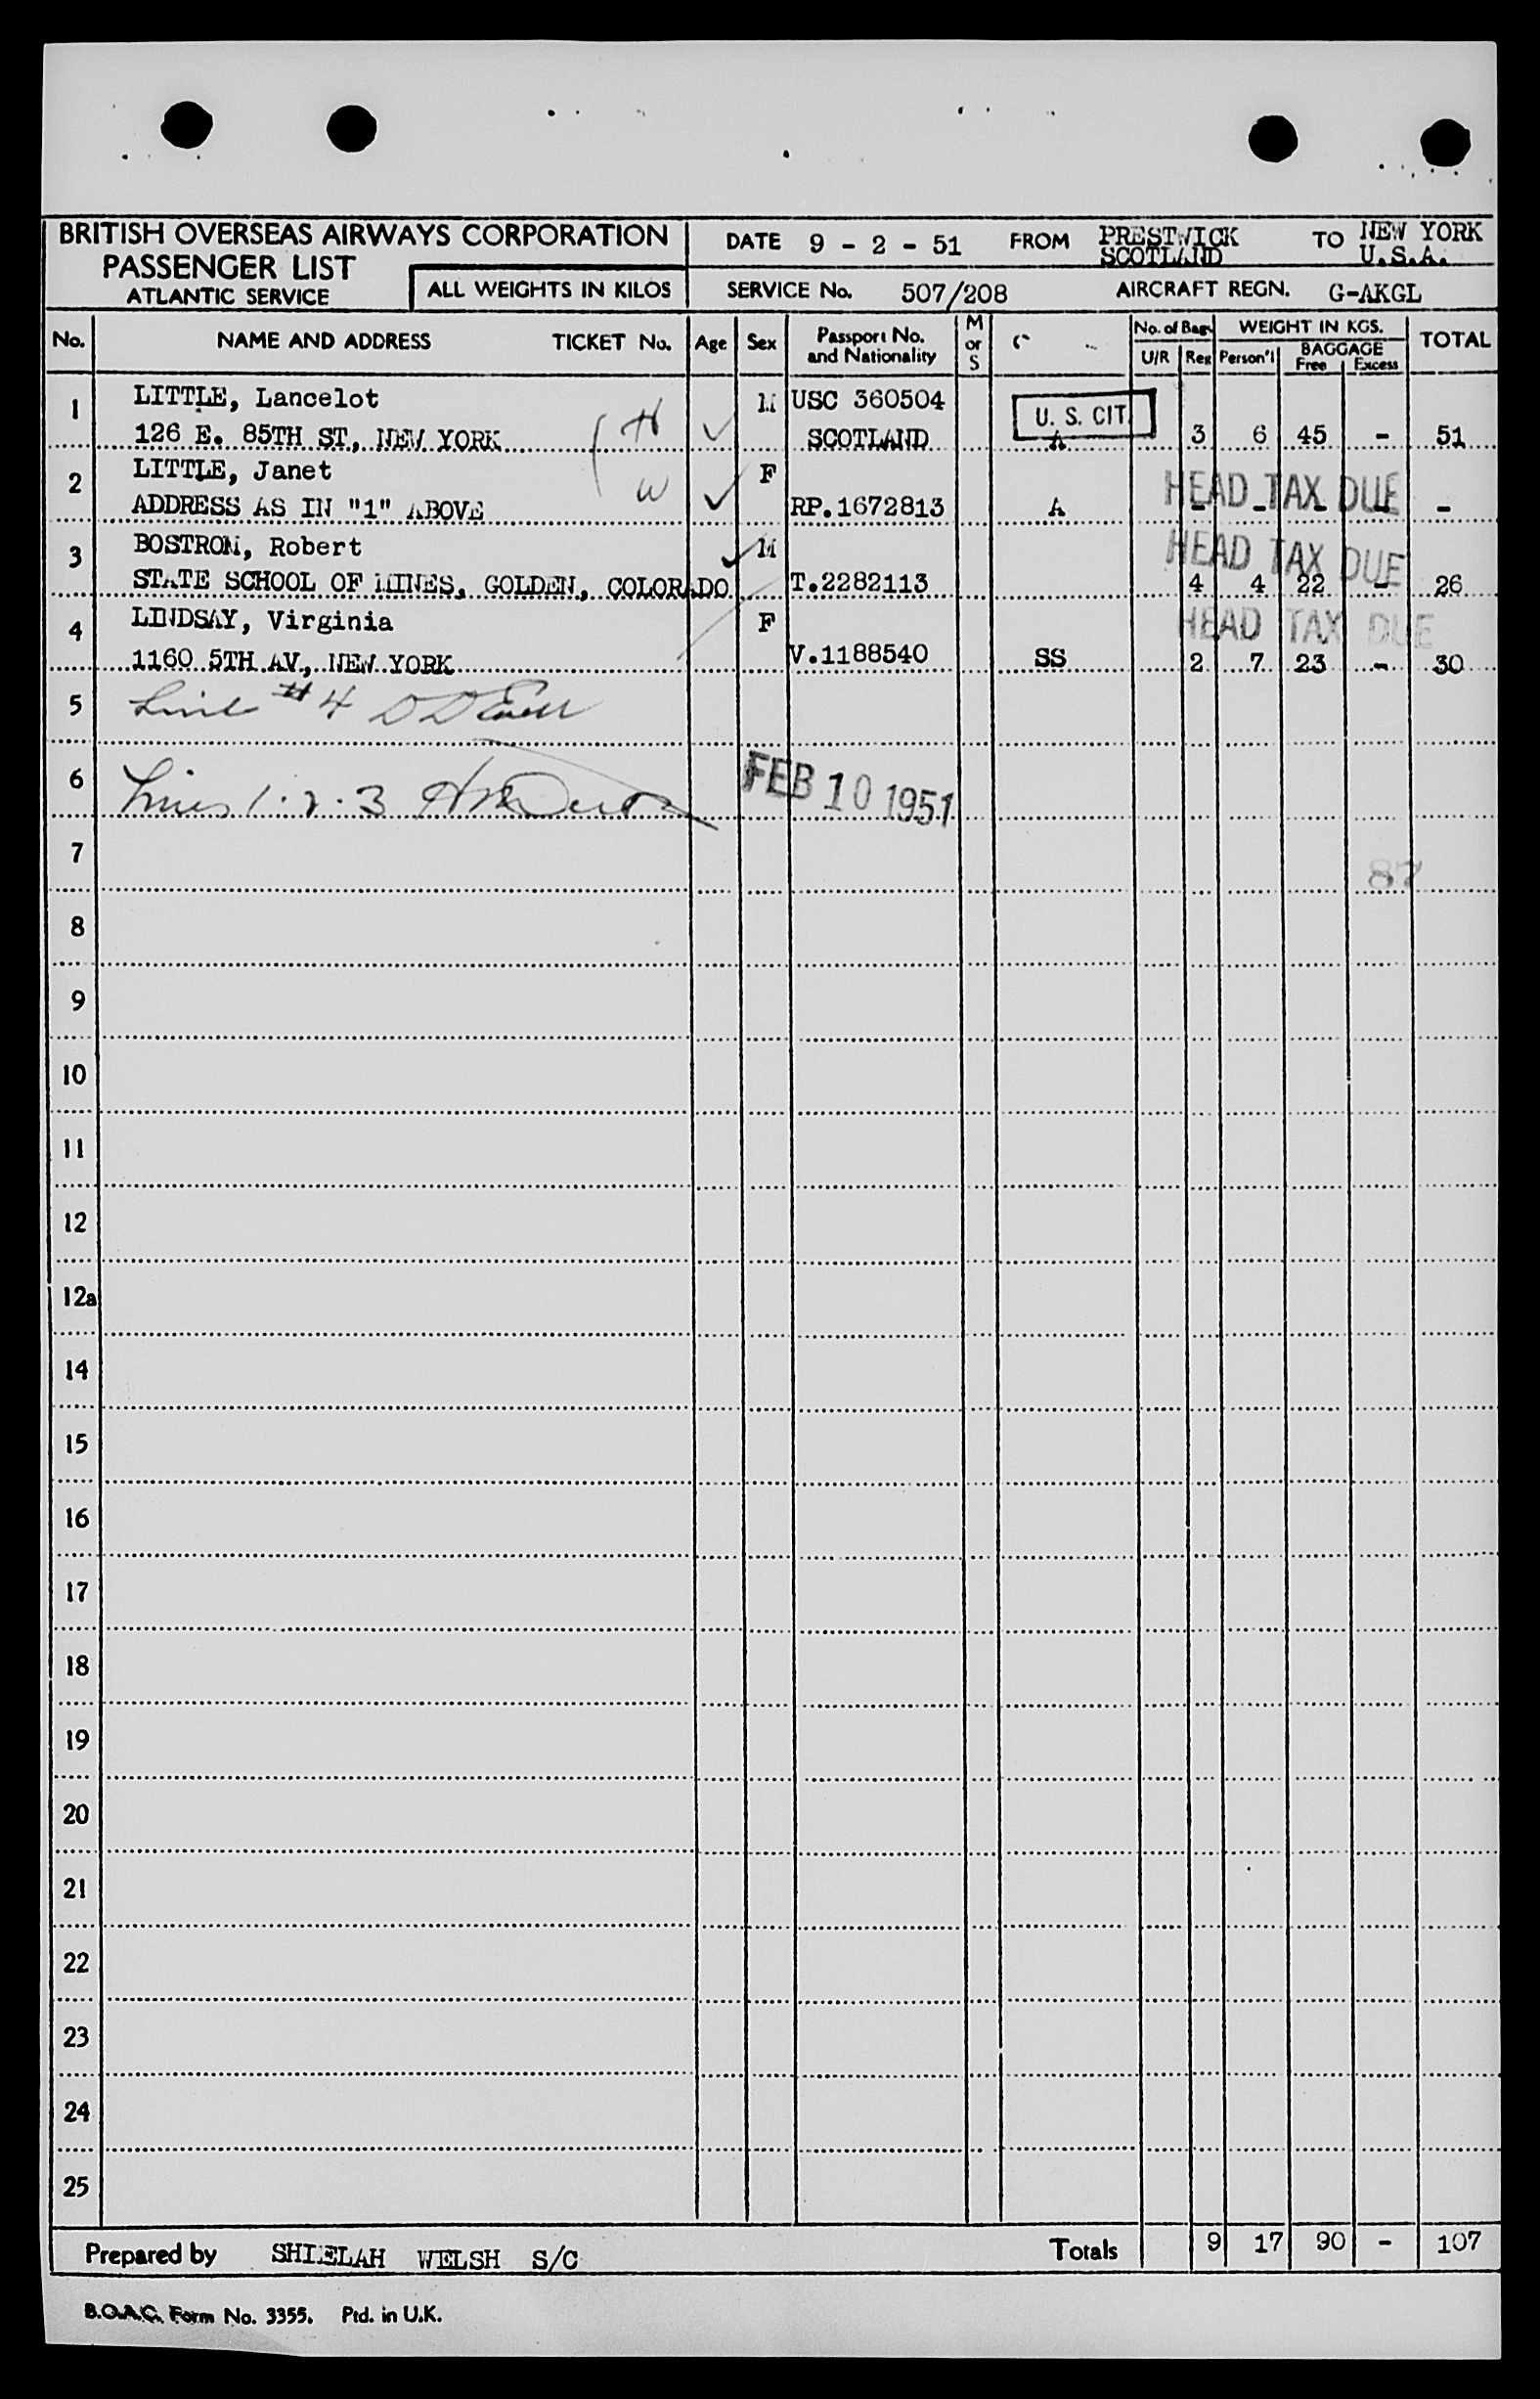 BRITISH OVERSEAS AIRWAYS CORPORATION
PASSENGER LIST
ATLANTIC SERVICE
ALL WEIGHTS IN KILOS
DATE 9 - 2 - 51 FROM PRESTWICK SCOTLAND TO NEW YORK U.S.A.
SERVICE No. 507/208 AIRCRAFT REGN. G-AKGL
No. NAME AND ADDRESS TICKET No. Age Sex Passport No. and Nationality M or S No. of Bags U/R Reg WEIGHT IN KGS. Person'l BAGGAGE Free Excess TOTAL
1 LITTLE, Lancelot H M USC 360504 U. S. CIT.
126 E. 85TH ST, NEW YORK SCOTLAND A 3 6 45 - 51
2 LITTLE, Janet W F HEAD TAX DUE
ADDRESS AS IN "1" ABOVE RP.1672813 A - - - - -
3 BOSTROM, Robert M HEAD TAX DUE
STATE SCHOOL OF MINES, GOLDEN, COLORADO T.2282113 4 4 22 - 26
4 LINDSAY, Virginia F HEAD TAX DUE
1160 5TH AV, NEW YORK V.1188540 SS 2 7 23 - 30
5 Line #4
6 Lines 1.2.3 FEB 10 1951
7
87
8
9
10
11
12
12a
14
15
16
17
18
19
20
21
22
23
24
25
Prepared by SHIELAH WELSH S/C Totals 9 17 90 - 107
B.O.A.C. Form No. 3355. Ptd. in U.K.